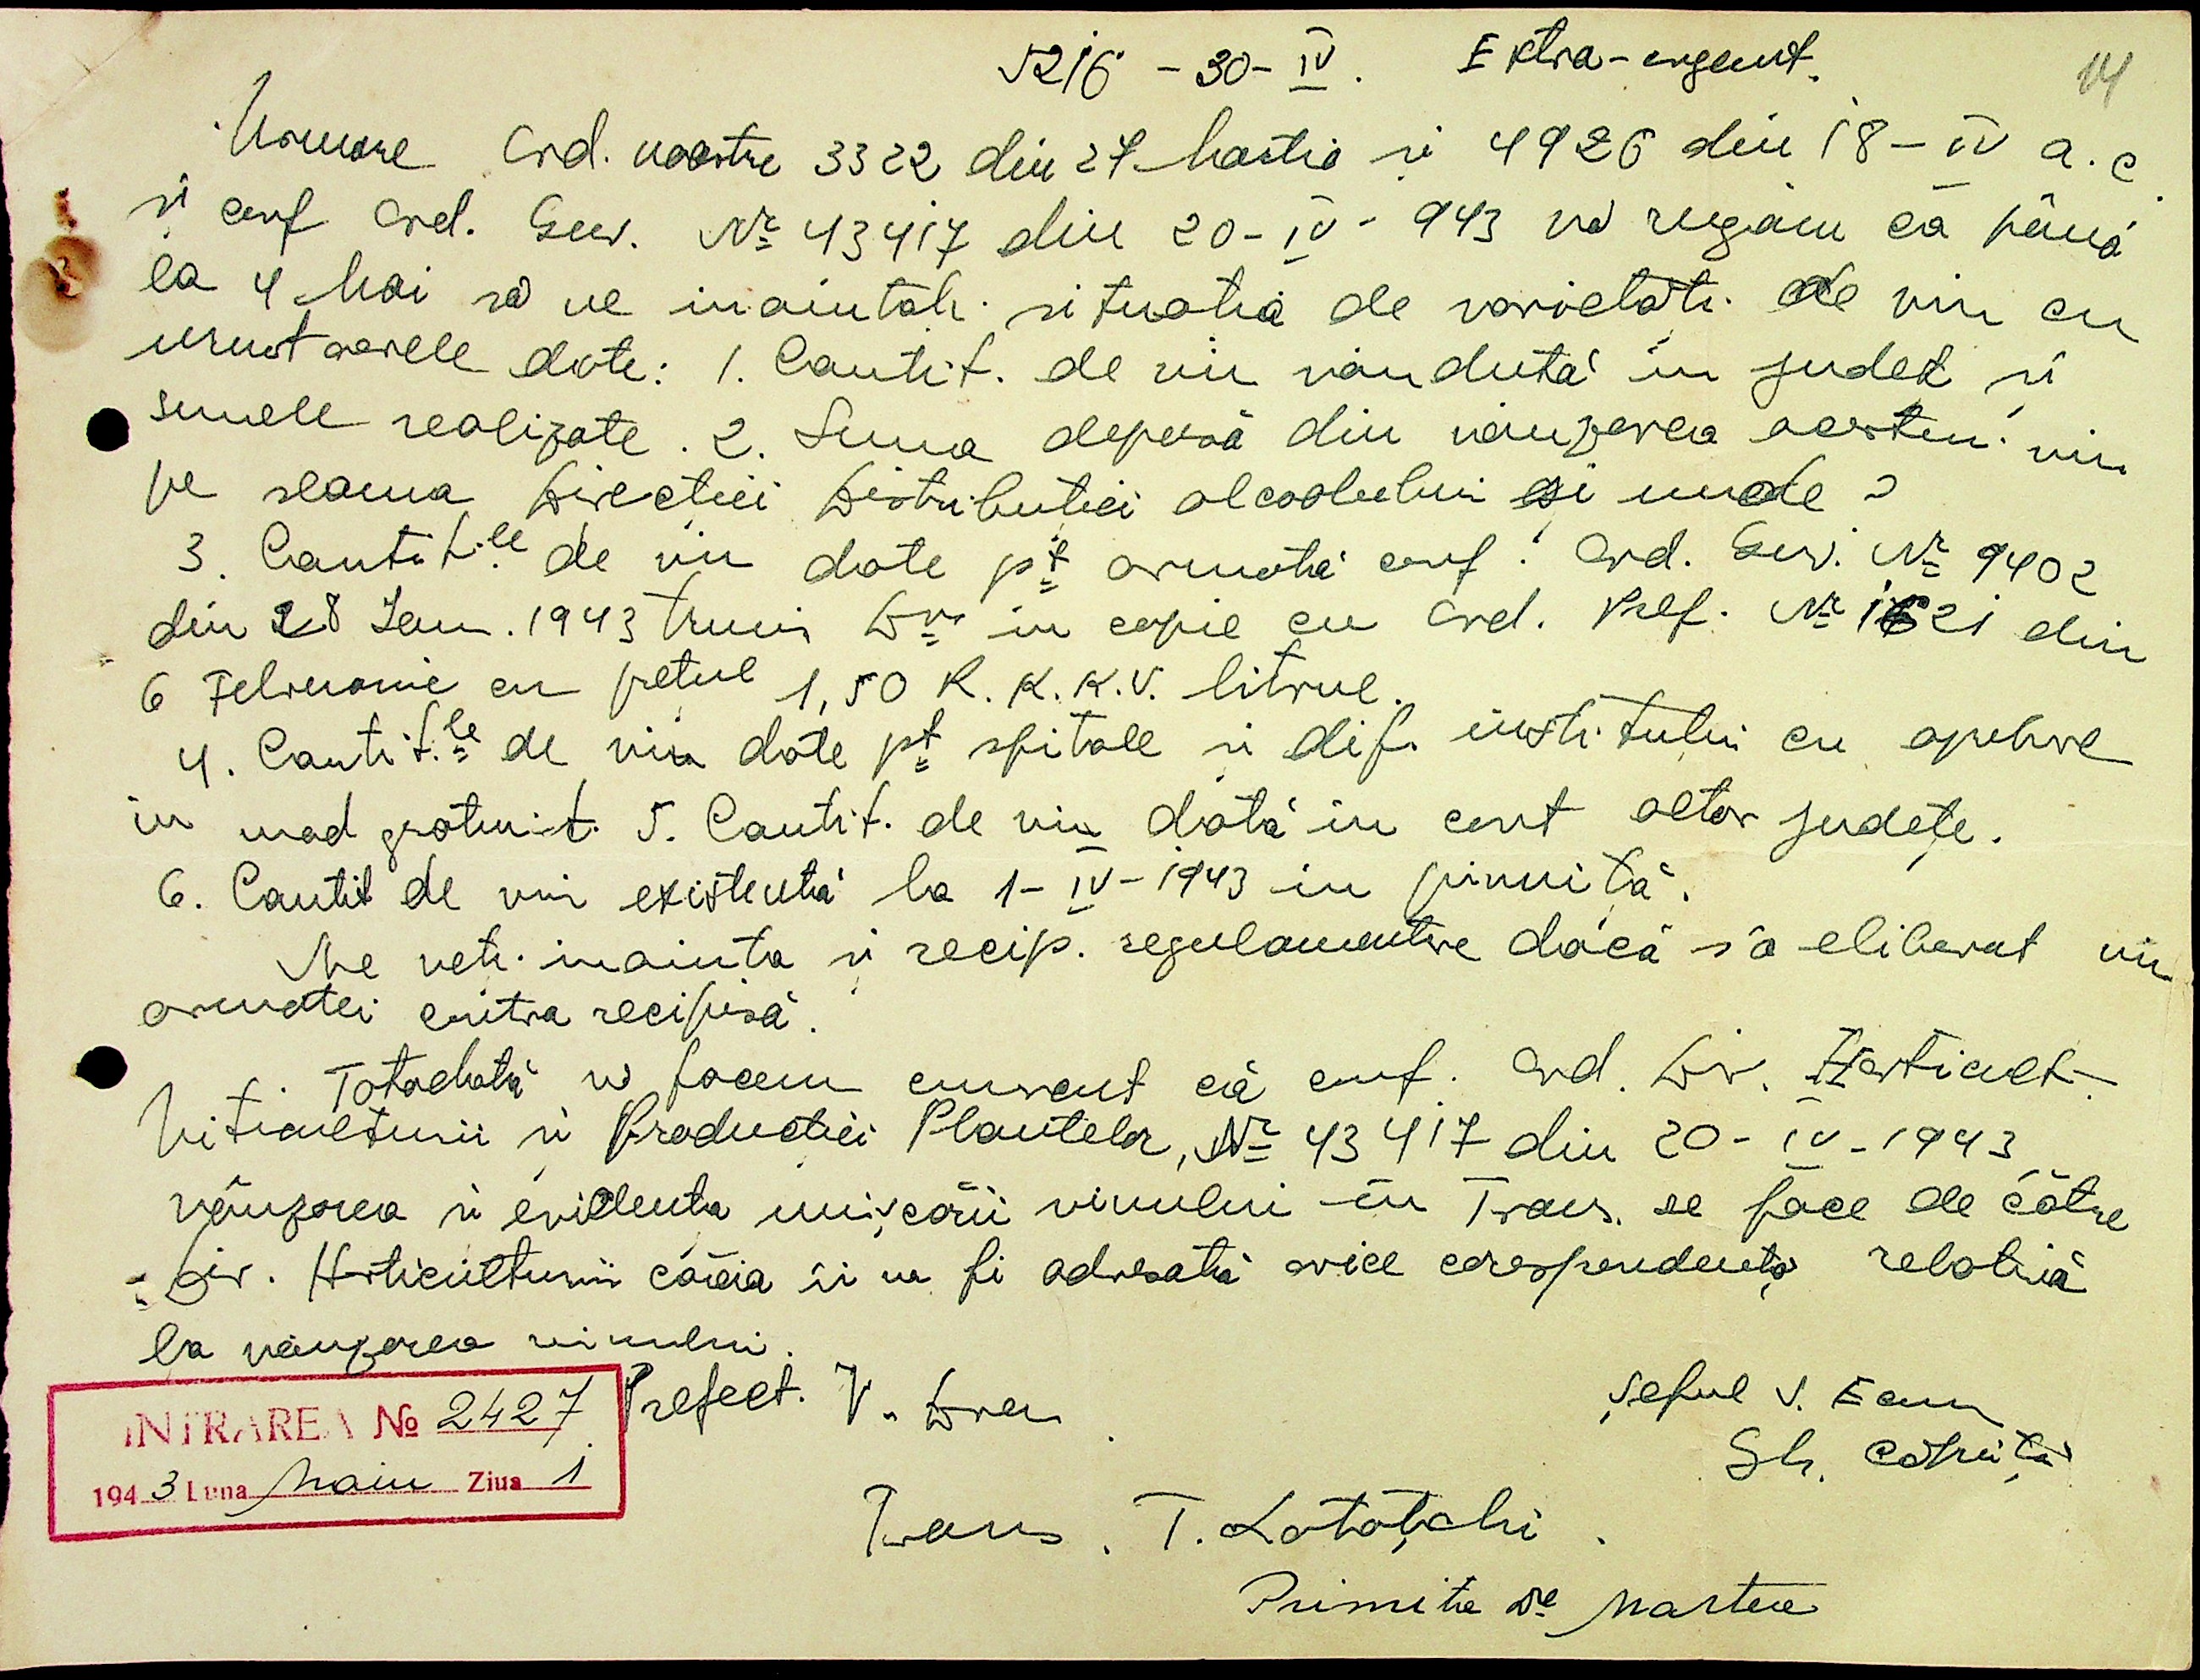 5216 - 30 - IV. Extra-urgent.
14
Urmare Ord. noastre 3322 din 27 Martie și 4926 din 18 - IV a.c.
și conf Ord. Guv. Nr 43417 din 20 - IV - 943 vă rugăm ca până
la 4 Mai să ne inaintați situația de varietăți de vin cu
urmatoarele date: 1. Cantit. de vin vândută in județ și
sumele realizate. 2. Suma depusă din vânzarea acestui vin
pe seama Direcției Distribuției alcoolului și unde ?
3. Cantit.le de vin date pt armată conf. Ord. Guv. Nr 9402
din 28 Ian. 1943 trimis Dv in copie cu Ord. Pref. Nr 1621 din
6 Februarie cu prețul 1,50 R.K.K.V. litrul.
4. Cantit.le de vin date pt spitale și dif. instituții cu aprobare
in mod gratuit. 5. Cantit. de vin dată in cont altor județe.
6. Cantit de vin existentă la 1 - IV - 1943 in pivniță.
Ne veți inainta și recip. regulamentare dacă s'a eliberat vin
armatei contra recipisă.
Totodată vă facem cunoscut că conf. Ord. Dir. Horticult.
Viticulturii și Producției Plantelor, Nr 43417 din 20 - IV - 1943
vânzarea și evidența mișcării vinului in Trans. se face de către
Dir. Horticulturii căreia ii va fi adresată orice corespondență relativă
la vânzarea vinului.
Prefect. V. Dron
Șeful S. Econ
Gh. Cotruță
INTRAREA № 2427
194 3 Luna Maiu Ziua 1
Trans. T. Lototchi.
Primita de Martea